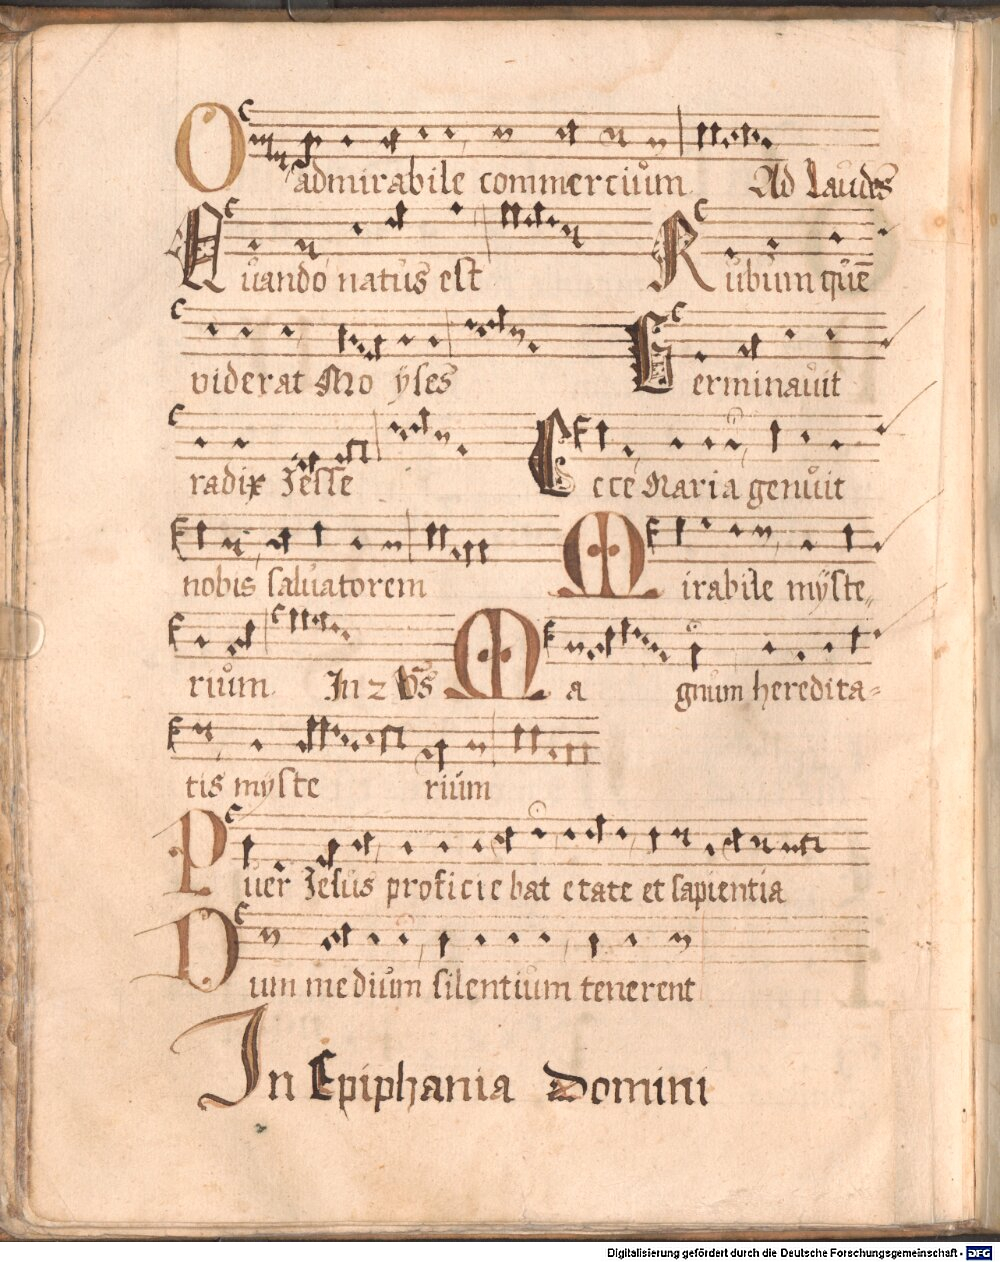 O admirabile commercium Ad Laudes
Quando natus est Rubum quē
viderat Mo ÿses Germinavit
radix Jesse Ecce Maria genuit
nobis salvatorem Mirabile mÿste„
rium In 2 Vs̄ Ma gnum heredita=
tis mÿste rium
Puer Jesus proficie bat etate et sapientia
Dum medium silentium tenerent
In Epiphania Domini
Digitalisierung gefördert durch die Deutsche Forschungsgemeinschaft - DFG